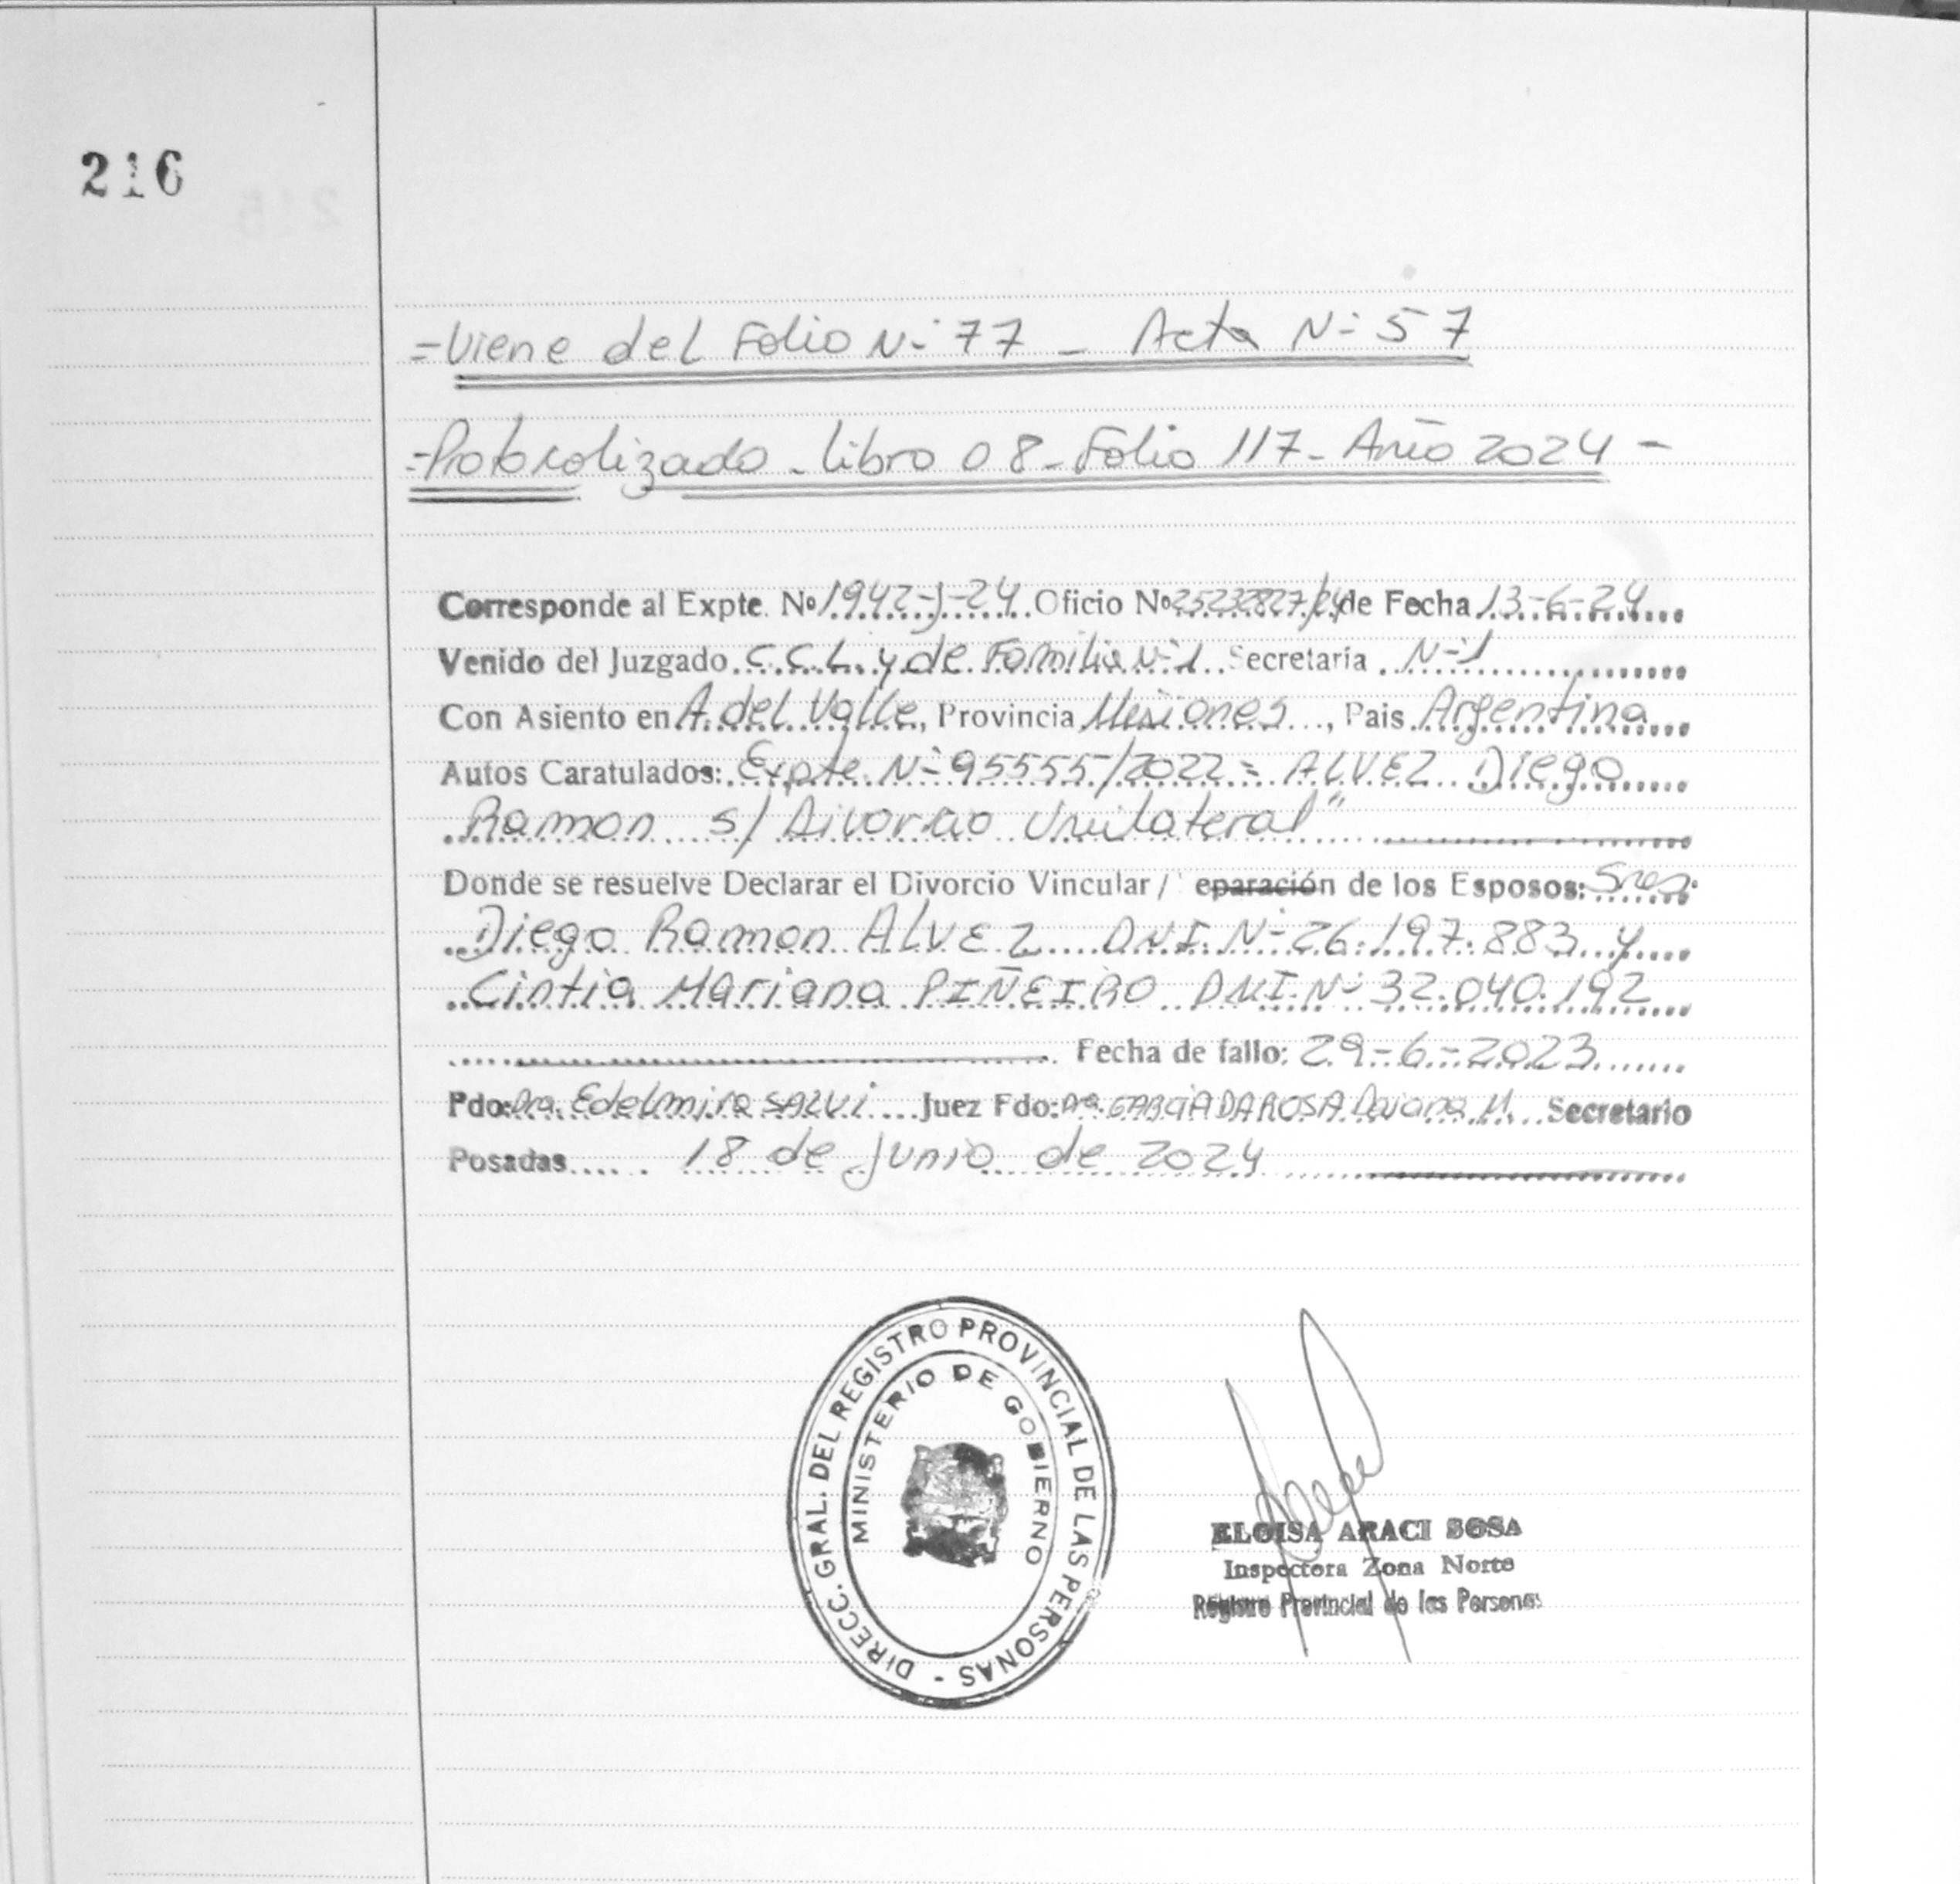 216
=Viene del Folio N-77 - Acta N-57
-Protocolizado - libro 08 - Folio 117 - Año 2024 -
Corresponde al Expte. Nº 1942-J-24 Oficio Nº 25232827/24 de Fecha 13-6-24
Venido del Juzgado C.C.L. y de Familia N-1 Secretaría N-1
Con Asiento en A. del Valle, Provincia Misiones, Pais Argentina
Autos Caratulados: Expte. N-95555/2022 = ALVEZ Diego
Ramon s/ Divorcio Unilateral"
Donde se resuelve Declarar el Divorcio Vincular / eparación de los Esposos: Sres.
Diego Ramon ALVEZ DNI. N-26.197.883 y
Cintia Mariana PIÑEIRO DNI. N-32.040.192
Fecha de fallo: 29-6-2023
Pdo: Dra. Edelmira SALVI Juez Fdo: Dra. GARCIA DA ROSA M. Secretario
Posadas 18 de Junio de 2024
DIRECC. GRAL. DEL REGISTRO PROVINCIAL DE LAS PERSONAS -
MINISTERIO DE GOBIERNO
ELOISA ARACI SOSA
Inspectora Zona Norte
Registro Provincial de las Personas